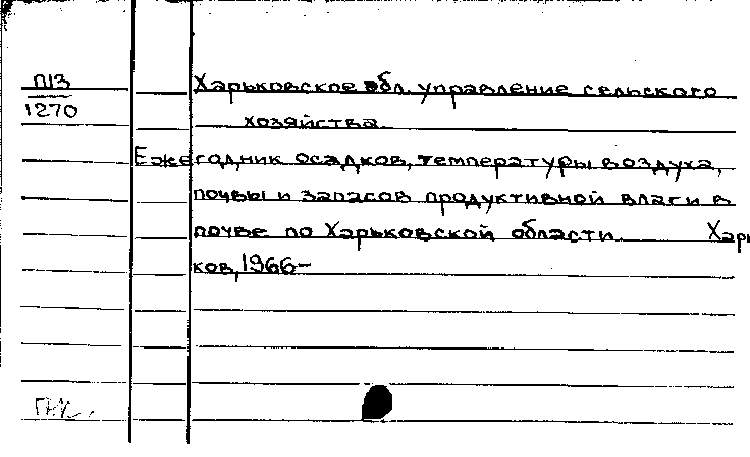 П13
1270
Харьковское обл. управление сельского
хозяйства.
Ежегодник осадков, температуры воздуха,
почвы и запасов продуктивной влаги в
почве по Харьковской области. Харь
ков, 1966-